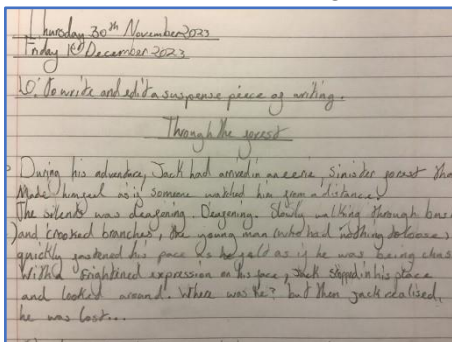 Thursday 30th November 2023
Friday 1st December 2023
LO: To write and edit a suspense piece of writing.
Through the forest
During his adventure, Jack had arrived in an eerie, sinister forest that
Made himself as if someone watched him from a distance.
The silents was deafening. Deafening. Slowly walking through
and crooked branches, the young man (who had nothing to loose)
quickly fastened his pace as he feld as if he was being
With a frightened expression on his face, Jack stopped in his place
and looked around. Where was he? but then Jack realised,
he was lost...